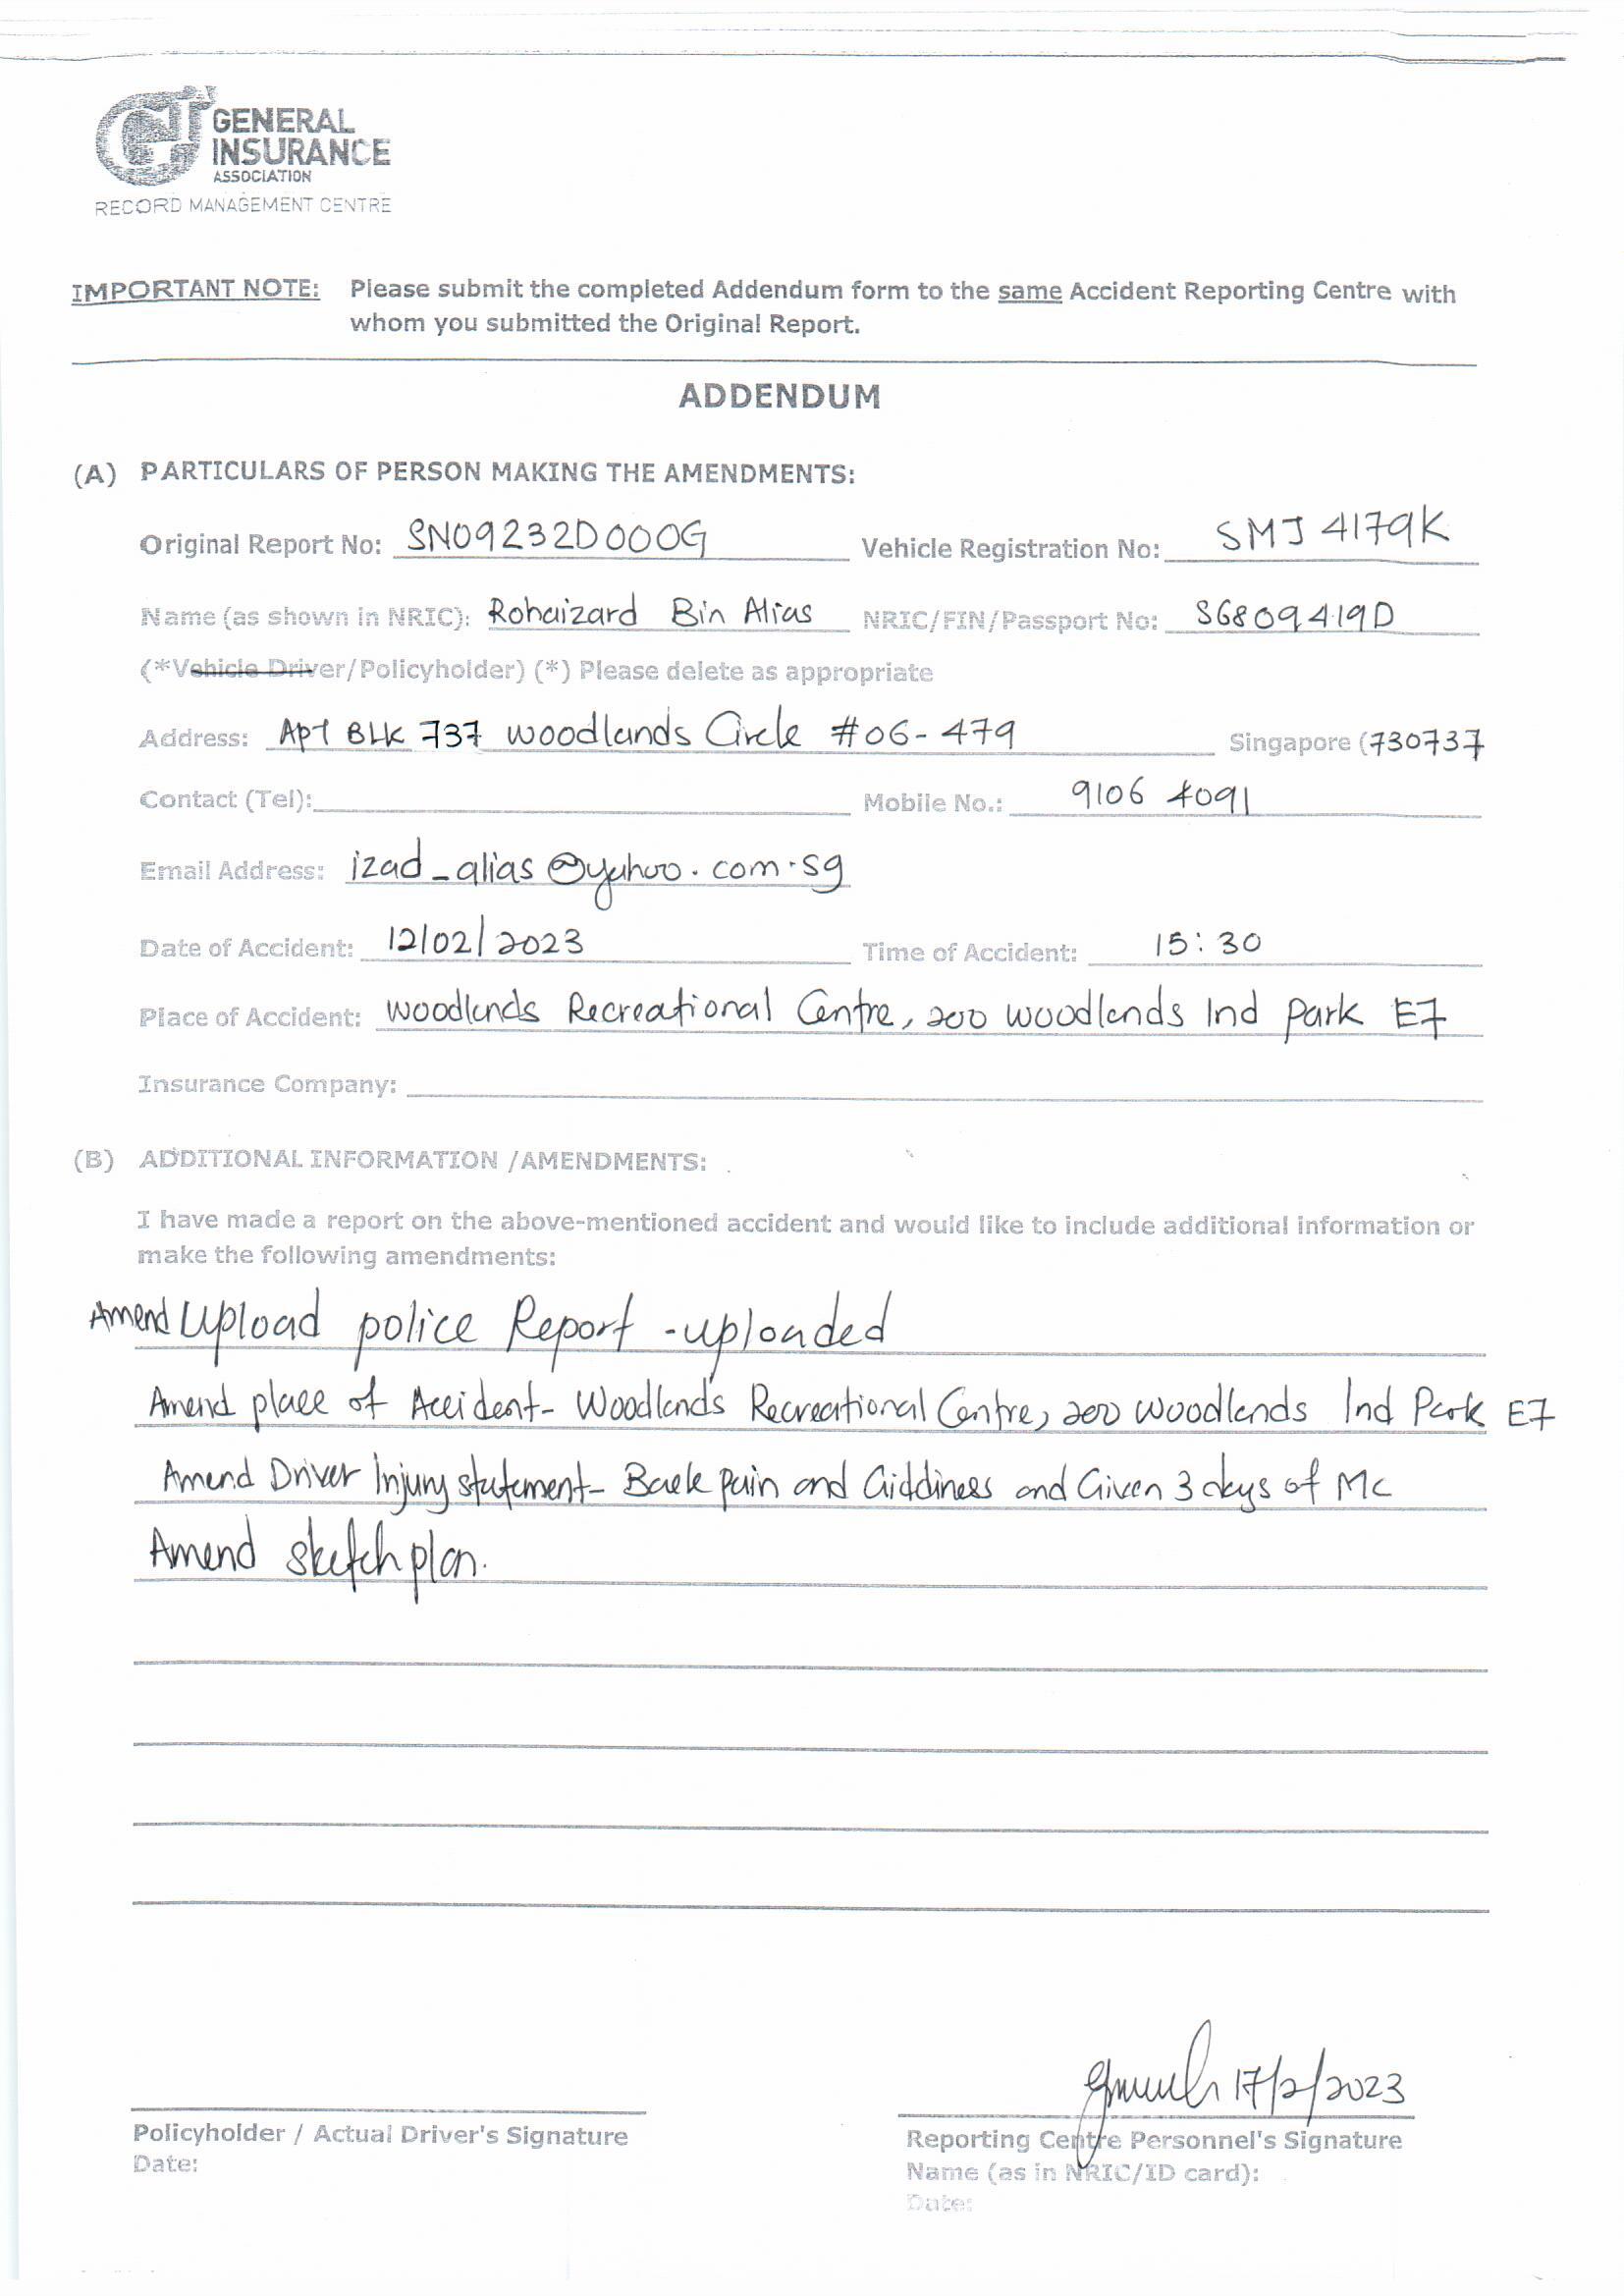 GENERAL
INSURANCE
ASSOCIATION
RECORD MANAGEMENT CENTRE
IMPORTANT NOTE: Please submit the completed Addendum form to the same Accident Reporting Centre with
whom you submitted the Original Report.
ADDENDUM
(A) PARTICULARS OF PERSON MAKING THE AMENDMENTS:
Original Report No: SN09232D000G Vehicle Registration No: SMJ 4179K
Name (as shown in NRIC): Rohaizard Bin Alias NRIC/FIN/Passport No: S6809419D
(*Vehicle Driver/Policyholder) (*) Please delete as appropriate
Address: Apt BLK 737 woodlands Circle #06-479 Singapore (730737
Contact (Tel): Mobile No.: 9106 4091
Email Address: izad_alias@yahoo.com.sg
Date of Accident: 12/02/2023 Time of Accident: 15:30
Place of Accident: Woodlands Recreational Centre, 200 woodlands Ind Park E7
Insurance Company:
(B) ADDITIONAL INFORMATION /AMENDMENTS:
I have made a report on the above-mentioned accident and would like to include additional information or
make the following amendments:
Amend Upload police Report - uploaded
Amend place of Accident- Woodlands Recreational Centre, 200 woodlands Ind Park E7
Amend Driver Injury statement- Back pain and Giddiness and Given 3 days of Mc
Amend sketch plan.
17/2/2023
Policyholder / Actual Driver's Signature Reporting Centre Personnel's Signature
Date: Name (as in NRIC/ID card):
Date: